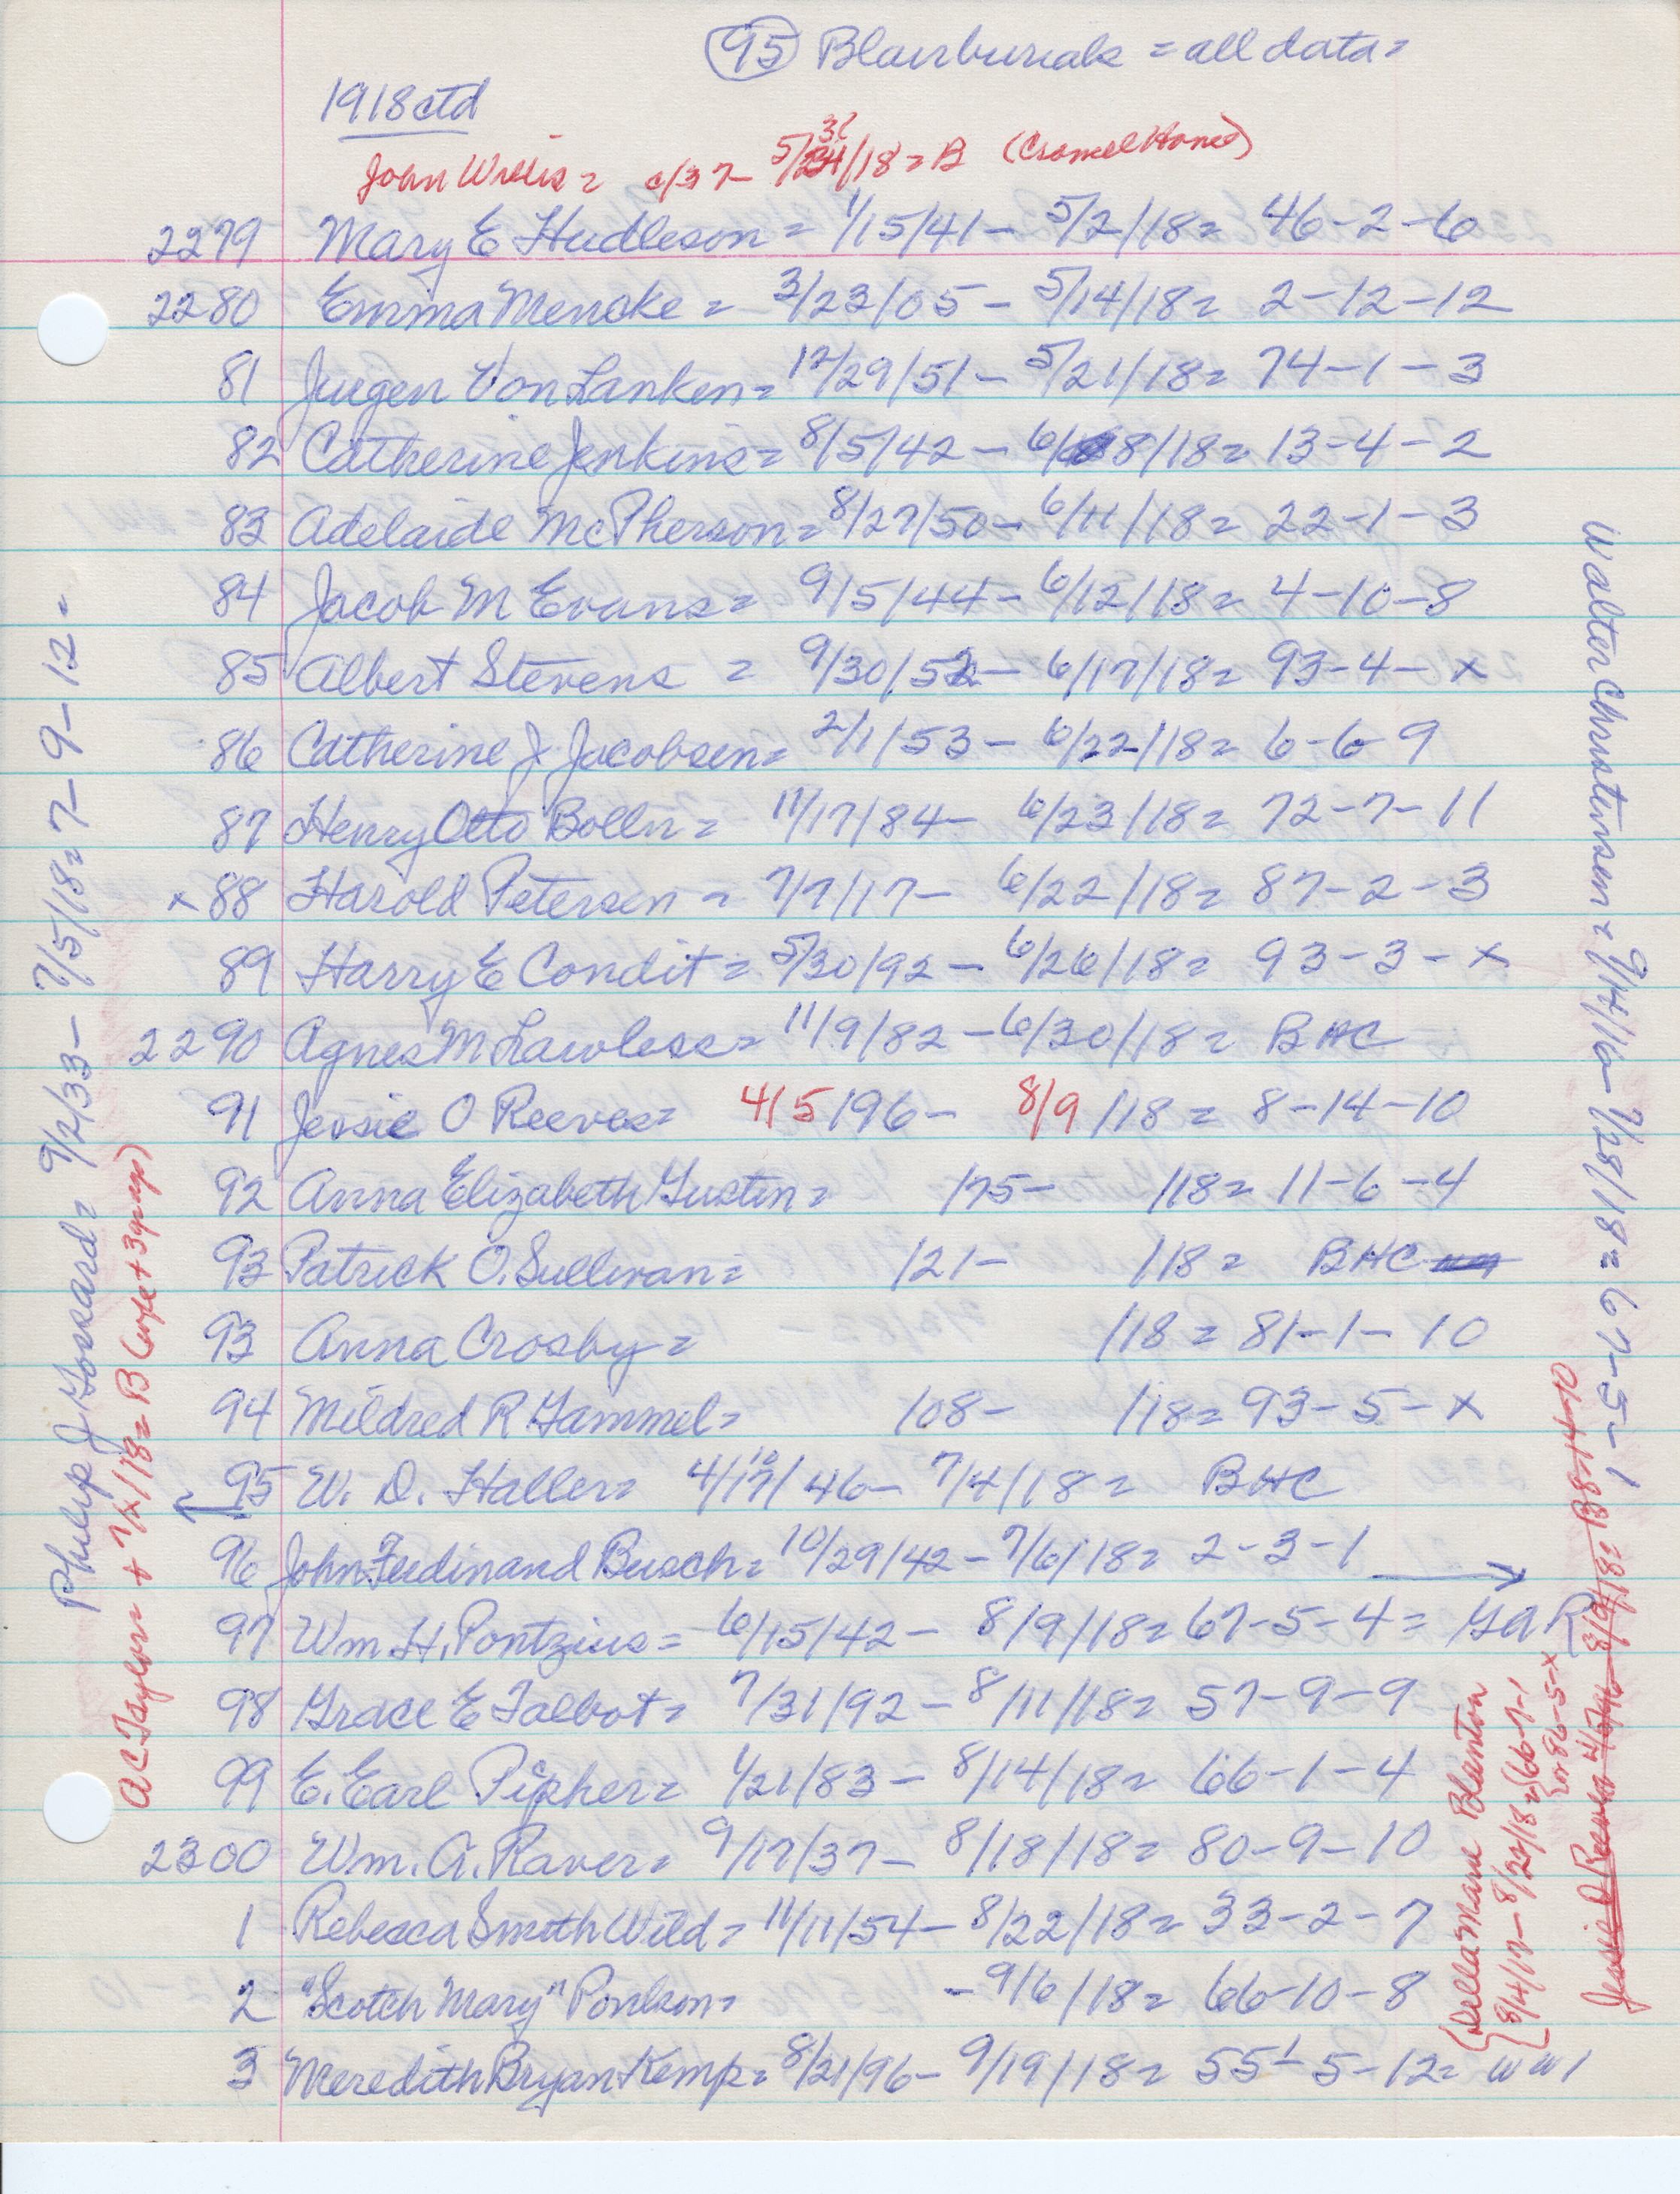 95 Blair burials = all data =
1918 ctd
John Willis = c/37 - 5/ /18 = B
2279 Mary E Hudleson = 1/15/41 - 5/2/18 = 46-2-6
2280 Emma Mencke = 3/23/05 - 5/14/18 = 2-12-12
81 Juegen Von Lanken = 12/29/51 - 5/21/18 = 74-1-3
82 Catherine Jenkins = 8/5/42 - 6/8/18 = 13-4-2
83 Adelaide McPherson = 8/27/50 - 6/11/18 = 22-1-3
84 Jacob M Evans = 9/5/44 - 6/12/18 = 4-10-8
85 Albert Stevens = 9/30/52 - 6/17/18 = 93-4-x
86 Catherine J. Jacobsen = 2/1/53 - 6/22/18 = 6-6-9
87 Henry Otto = 11/17/84 - 6/23/18 = 72-7-11
x 88 Harold Petersen = 7/7/17 - 6/22/18 = 87-2-3
89 Harry E Condit = 5/30/92 - 6/26/18 = 93-3-x
2290 Agnes M Lawless = 11/9/82 - 6/30/18 = BHC
91 Jessie O Reeves = 4/5/96 - 8/9/18 = 8-14-10
92 Anna Elizabeth Gustin = /75 - /18 = 11-6-4
93 Patrick O.Sullivan = /21 - /18 = BHC
93 Anna Crosby = /18 = 81-1-10
94 Mildred R Gammel = /08 - /18 = 93-5-x
95 W. D. Haller = 4/ /46 - 7/4/18 = BHC
96 John Ferdinand Busch = 10/29/42 - 7/6/18 = 2-3-1
97 Wm H. Pontzius = 6/15/42 - 8/9/18 = 67-5-4 = GAR
98 Grace E Talbot = 7/31/92 - 8/11/18 = 57-9-9
99 E. Earl Pipher = 1/21/83 - 8/14/18 = 66-1-4
2300 Wm. A. Raver = 9/17/37 - 8/18/18 = 80-9-10
1 Rebecca Smith Wild = 11/11/54 - 8/22/18 = 33-2-7
2 "Scotch Mary" Poulson = - 9/6/18 = 66-10-8
3 Meredith Bryan Kemp = 8/21/96 - 9/19/18 = 55-5-12 = WW1
Philip J Gossard = 9/2/33 - 7/5/18 = 7-9-12-
AC Taylor + 7/ /18 = B (wife + 3 graves)
Walter Christensen = 9/14/16 - 7/28/18 = 67-5-1
Della Marie Blanton
8/4/17 - 8/27/18 = 66-7-1
or 86-5-x
Jessie O Reeves 4/5/96 - 8/9/18 =